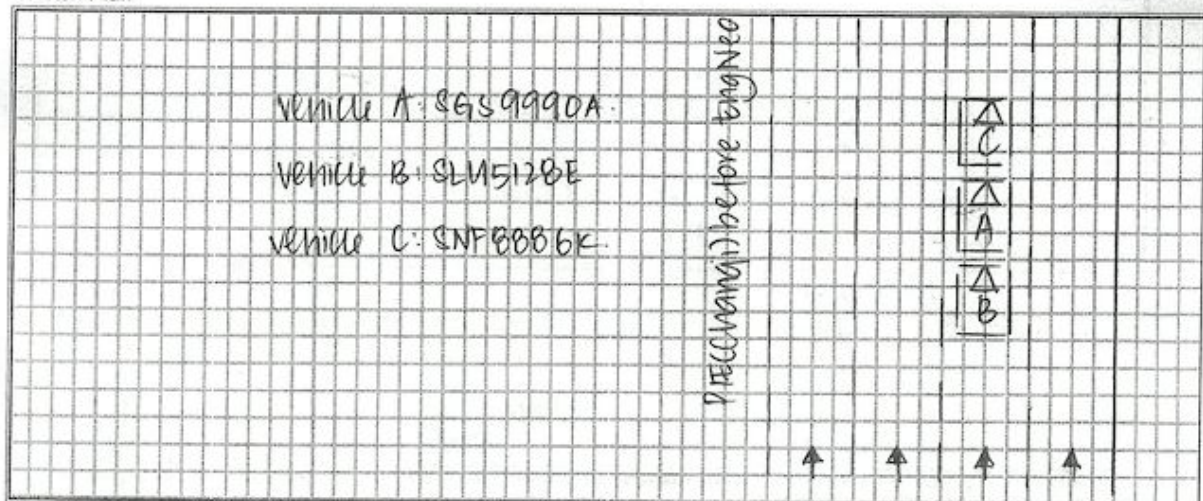 Vehicle A: SGS9990A
Vehicle B: SLU5128E
Vehicle C: SNF8886K
PIE(Changi) before Eng Neo
C
A
B